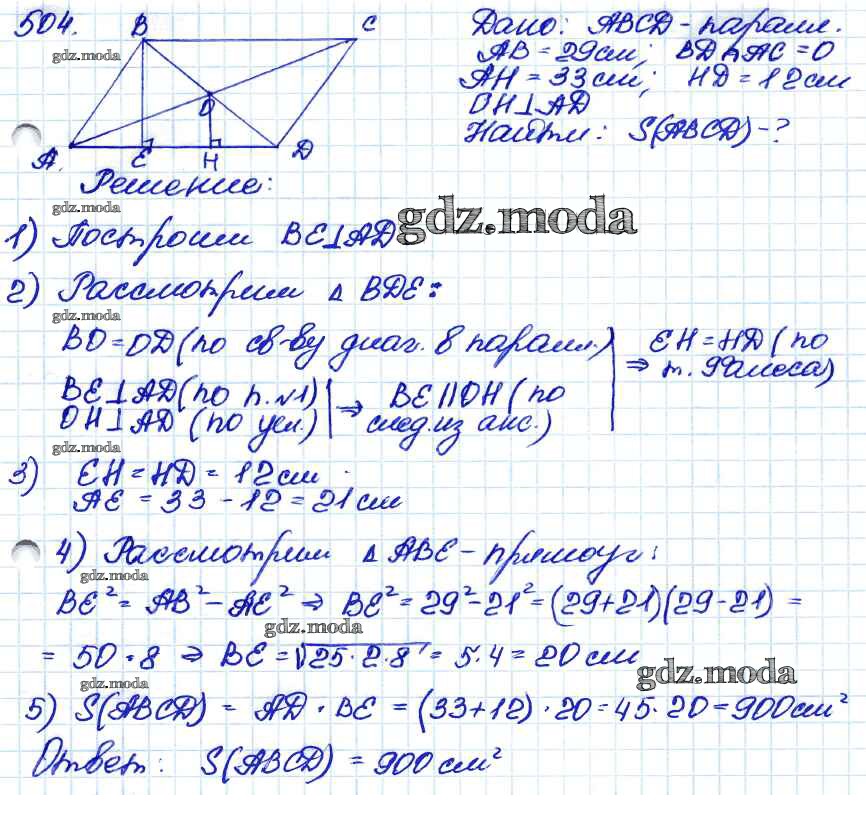 504.
B
C
O
A.
E
H
D
gdz.moda
Дано: ABCD - паралл.
AB = 29 см; BD ∩ AC = O
AH = 33 см; HD = 12 см
OH ⊥ AD
Найти: S(ABCD) - ?
Решение:
gdz.moda
1) Построим BE ⊥ AD
gdz.moda
2) Рассмотрим Δ BDE:
gdz.moda
BO = OD (по св-ву диаг. в паралл.)
BE ⊥ AD (по п. №1)
OH ⊥ AD (по усл.)
⇒ BE || OH (по
след. из акс.)
⇒ EH = HD (по
т. Фалеса)
gdz.moda
3) EH = HD = 12 см
AE = 33 - 12 = 21 см
4) Рассмотрим Δ ABE - прямоуг:
gdz.moda
BE² = AB² - AE² ⇒ BE² = 29² - 21² = (29+21)(29-21) =
gdz.moda
= 50 · 8 ⇒ BE = √25·2·8 = 5·4 = 20 см
gdz.moda
gdz.moda
5) S(ABCD) = AD · BE = (33+12) · 20 = 45·20 = 900 см²
Ответ: S(ABCD) = 900 см²